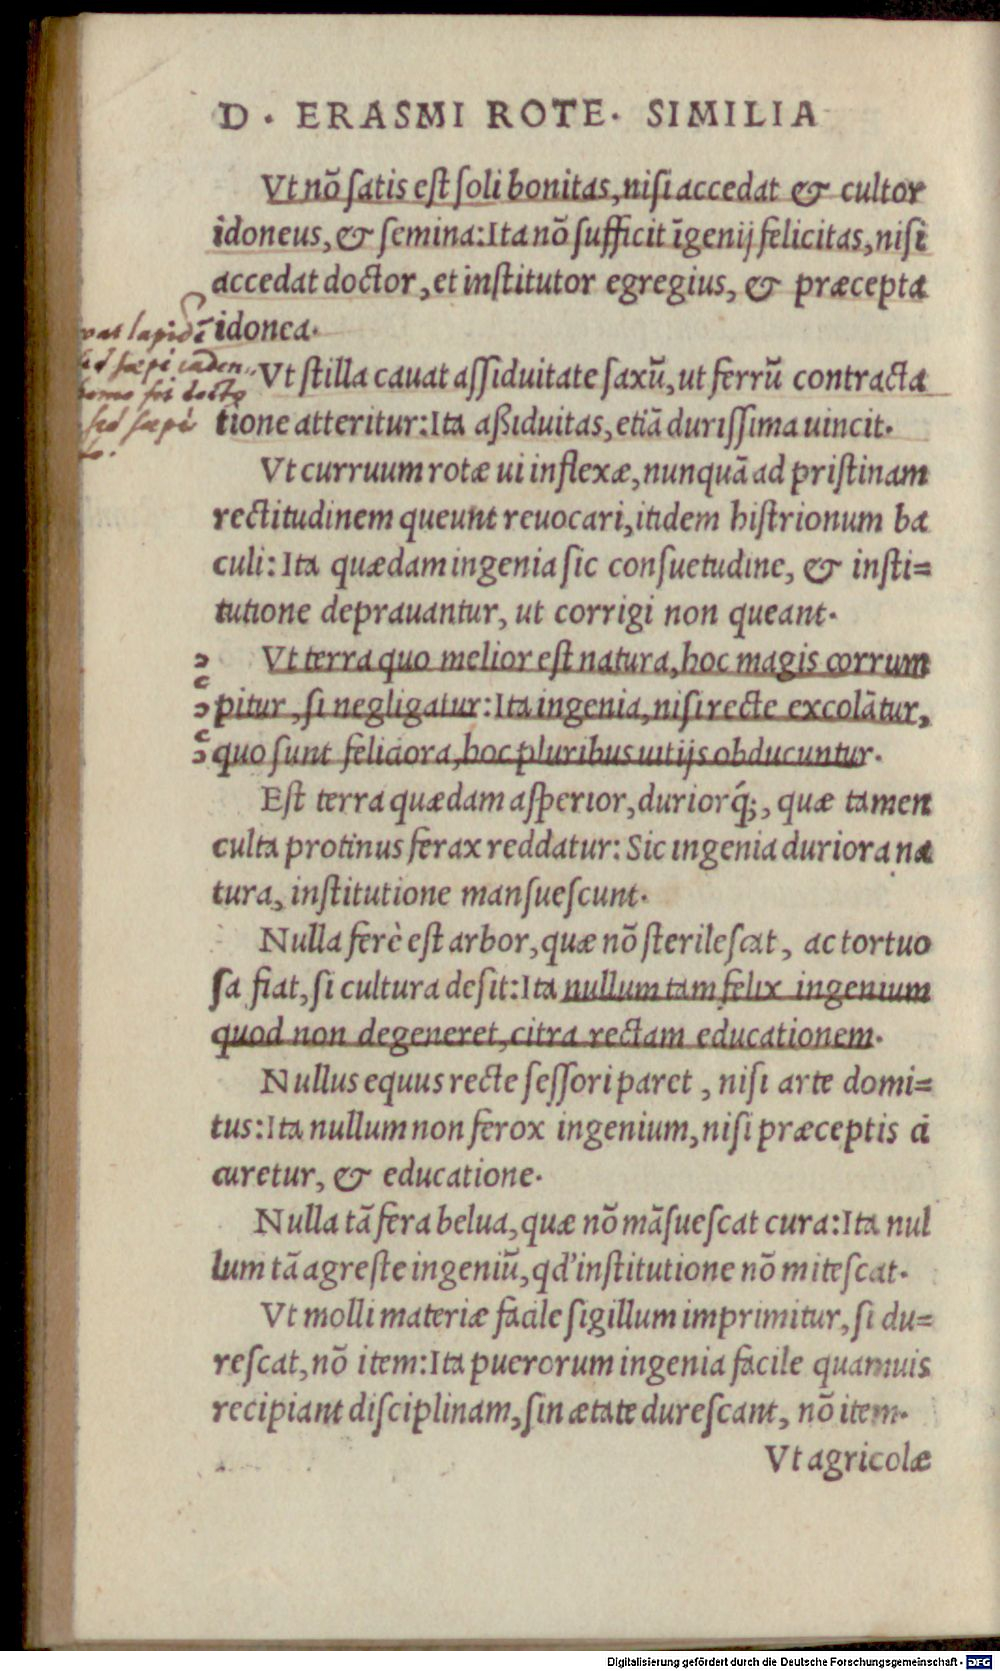 D. ERASMI ROTE. SIMILIA
Vt nō ſatis eſt ſoli bonitas, niſi accedat & cultor
idoneus, & ſemina: Ita nō ſufficit īgenij felicitas, niſi
accedat doctor, et inſtitutor egregius, & præcepta
idonea.
Vt ſtilla cauat aſſiduitate ſaxū, ut ferrū contracta
tione atteritur: Ita aßiduitas, etiā duriſſima uincit.
Vt curruum rotæ ui inflexæ, nunquā ad priſtinam
rectitudinem queunt reuocari, itidem hiſtrionum ba
culi: Ita quædam ingenia ſic conſuetudine, & inſti=
tutione deprauantur, ut corrigi non queant.
Vt terra quo melior eſt natura, hoc magis corrum
pitur, ſi negligatur: Ita ingenia, niſi recte excolātur,
quo ſunt feliciora, hoc pluribus uitijs obducuntur.
Eſt terra quædam aſperior, duriorq́;, quæ tamen
culta protinus ferax reddatur: Sic ingenia duriora na
tura, inſtitutione manſueſcunt.
Nulla ferè eſt arbor, quæ nō ſterileſcat, ac tortuo
ſa fiat, ſi cultura deſit: Ita nullum tam felix ingenium
quod non degeneret, citra rectam educationem.
Nullus equus recte ſeſſori paret, niſi arte domi=
tus: Ita nullum non ferox ingenium, niſi præceptis ci
curetur, & educatione.
Nulla tā fera belua, quæ nō māſueſcat cura: Ita nul
lum tā agreſte ingeniū, qd' inſtitutione nō miteſcat.
Vt molli materiæ facile ſigillum imprimitur, ſi du=
reſcat, nō item: Ita puerorum ingenia facile quamuis
recipiant diſciplinam, ſin ætate dureſcant, nō item.
Vt agricolæ
lapidē
ſæpe caden
ſed ſæpe
Digitalisierung gefördert durch die Deutsche Forschungsgemeinschaft - DFG